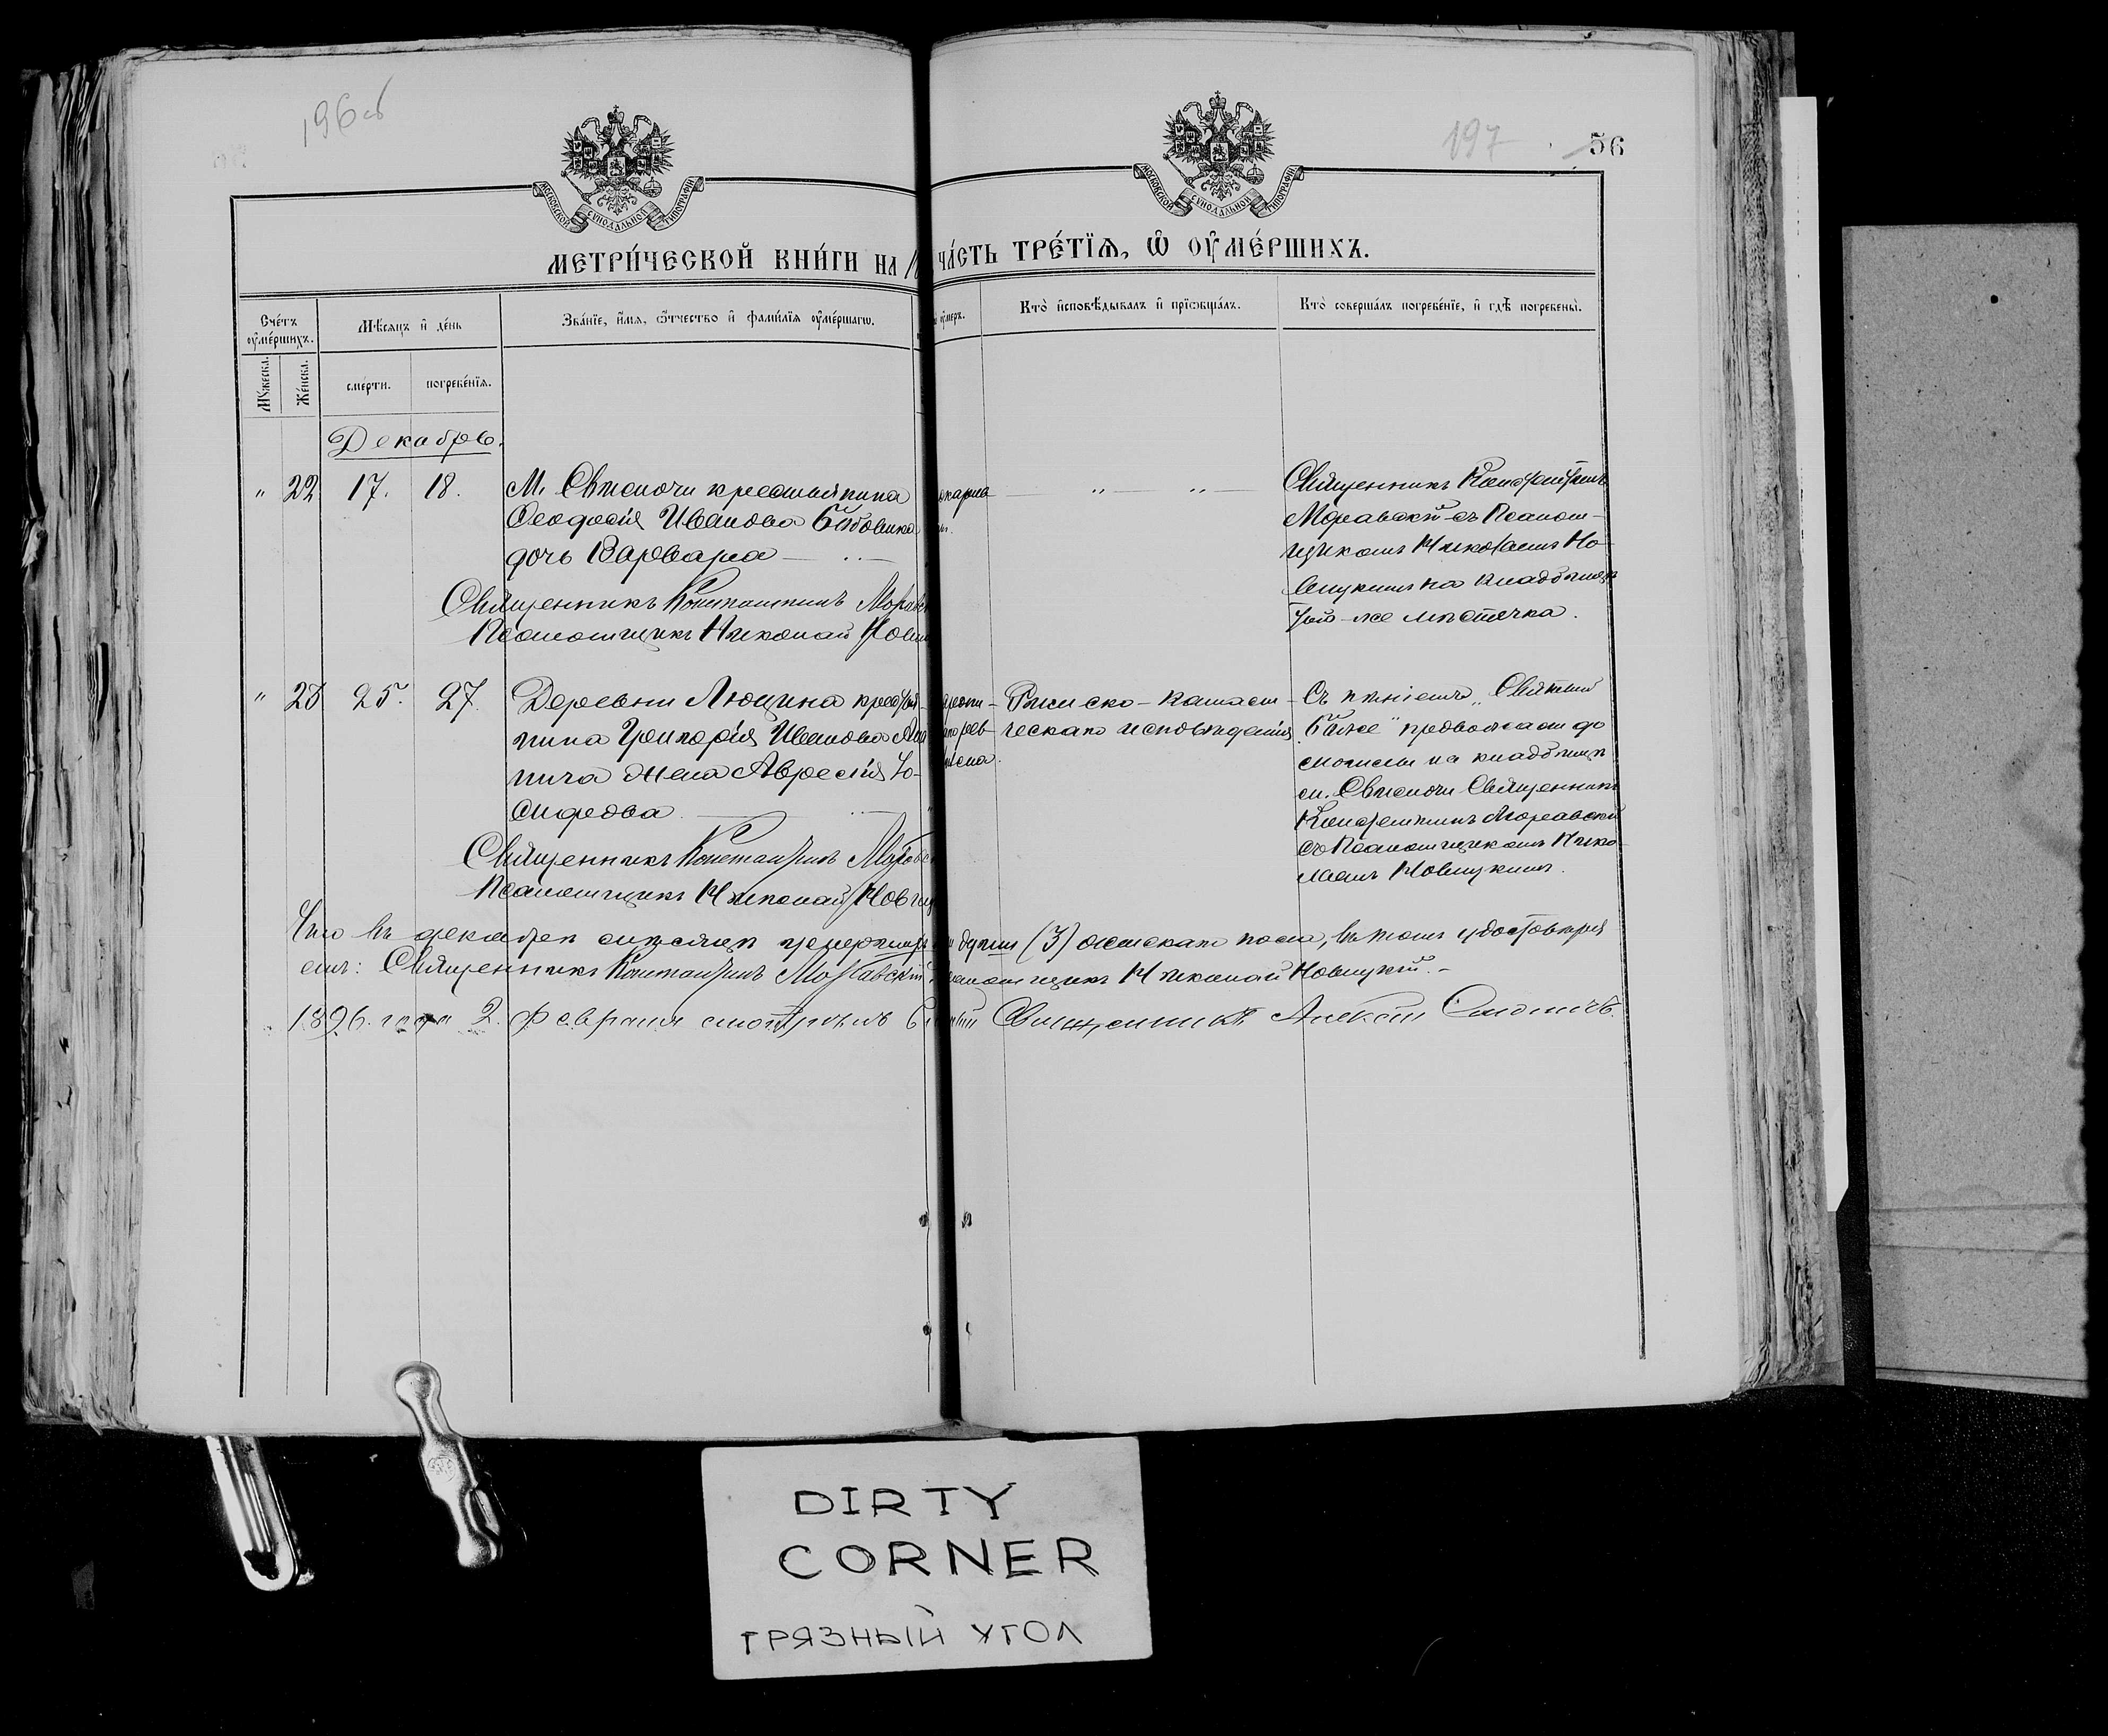 196об
197
56
МОСКОВСКОЙ СѴНОДАЛЬНОЙ ТИПОГРАФІИ
МОСКОВСКОЙ СѴНОДАЛЬНОЙ ТИПОГРАФІИ
МЕТРИ́ЧЕСКОЙ КНИ́ГИ НА
ЧА́СТЬ ТРЕ́ТЇѦ, Ѡ ОУ҆МЕ́РШИХЪ.
Сче́тъ оу҆ме́ршихъ.
Мѣсяцъ и҆ де́нь
Зва́нїе, и҆́мя, ѻ҆́тчество и҆ фами́лїя оу҆ме́ршагѡ.
оу҆́меръ.
Кто̀ и҆сповѣ́дывалъ и҆ прїѡбща́лъ.
Кто̀ соверша́лъ погребе́нїе, и҆ гдѣ̀ погребены̀.
Мꙋжеска.
Же́нска.
сме́рти.
погребе́нїя.
Декабрь.
" 22 17. 18. М. Свислочи крестьянина
Ѳеодосія Иванова
дочь Варвара
Священникъ Константинъ
Псаломщикъ Николай
" — " —
Священникъ Константинъ
Моравскій съ Псалом-
щикомъ Николаемъ Но-
вицкимъ на кладбищѣ
того-же мѣстечка.
" 23 25. 27. Деревни Лющина крестья-
нина Григорія Иванова
нича жена Ю-
сифова
Священникъ Константинъ
Псаломщикъ Николай
Римско-Католи-
ческаго исповѣданія
Съ пѣніемъ „Святый
Боже" предвожалъ до
могилы на кладбищѣ
м. Свислочи Священникъ
Константинъ Моравскій
съ Псаломщикомъ Нико-
лаемъ Новицкимъ.
Что въ декабрѣ мѣсяцѣ (3) женскаго пола, въ томъ удостовѣря
емъ: Священникъ Константинъ Моравскій Псаломщикъ Николай Новицкій.
1896. года 2. Февраля Священникъ Алексій
DIRTY
CORNER
ГРЯЗНЫЙ УГОЛ